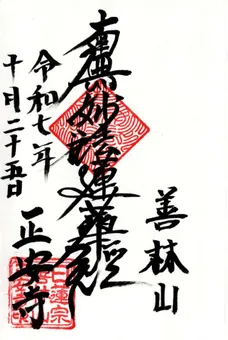 善林山
南無妙法蓮華経
令和七年
十月二十五日
正安寺
日蓮宗